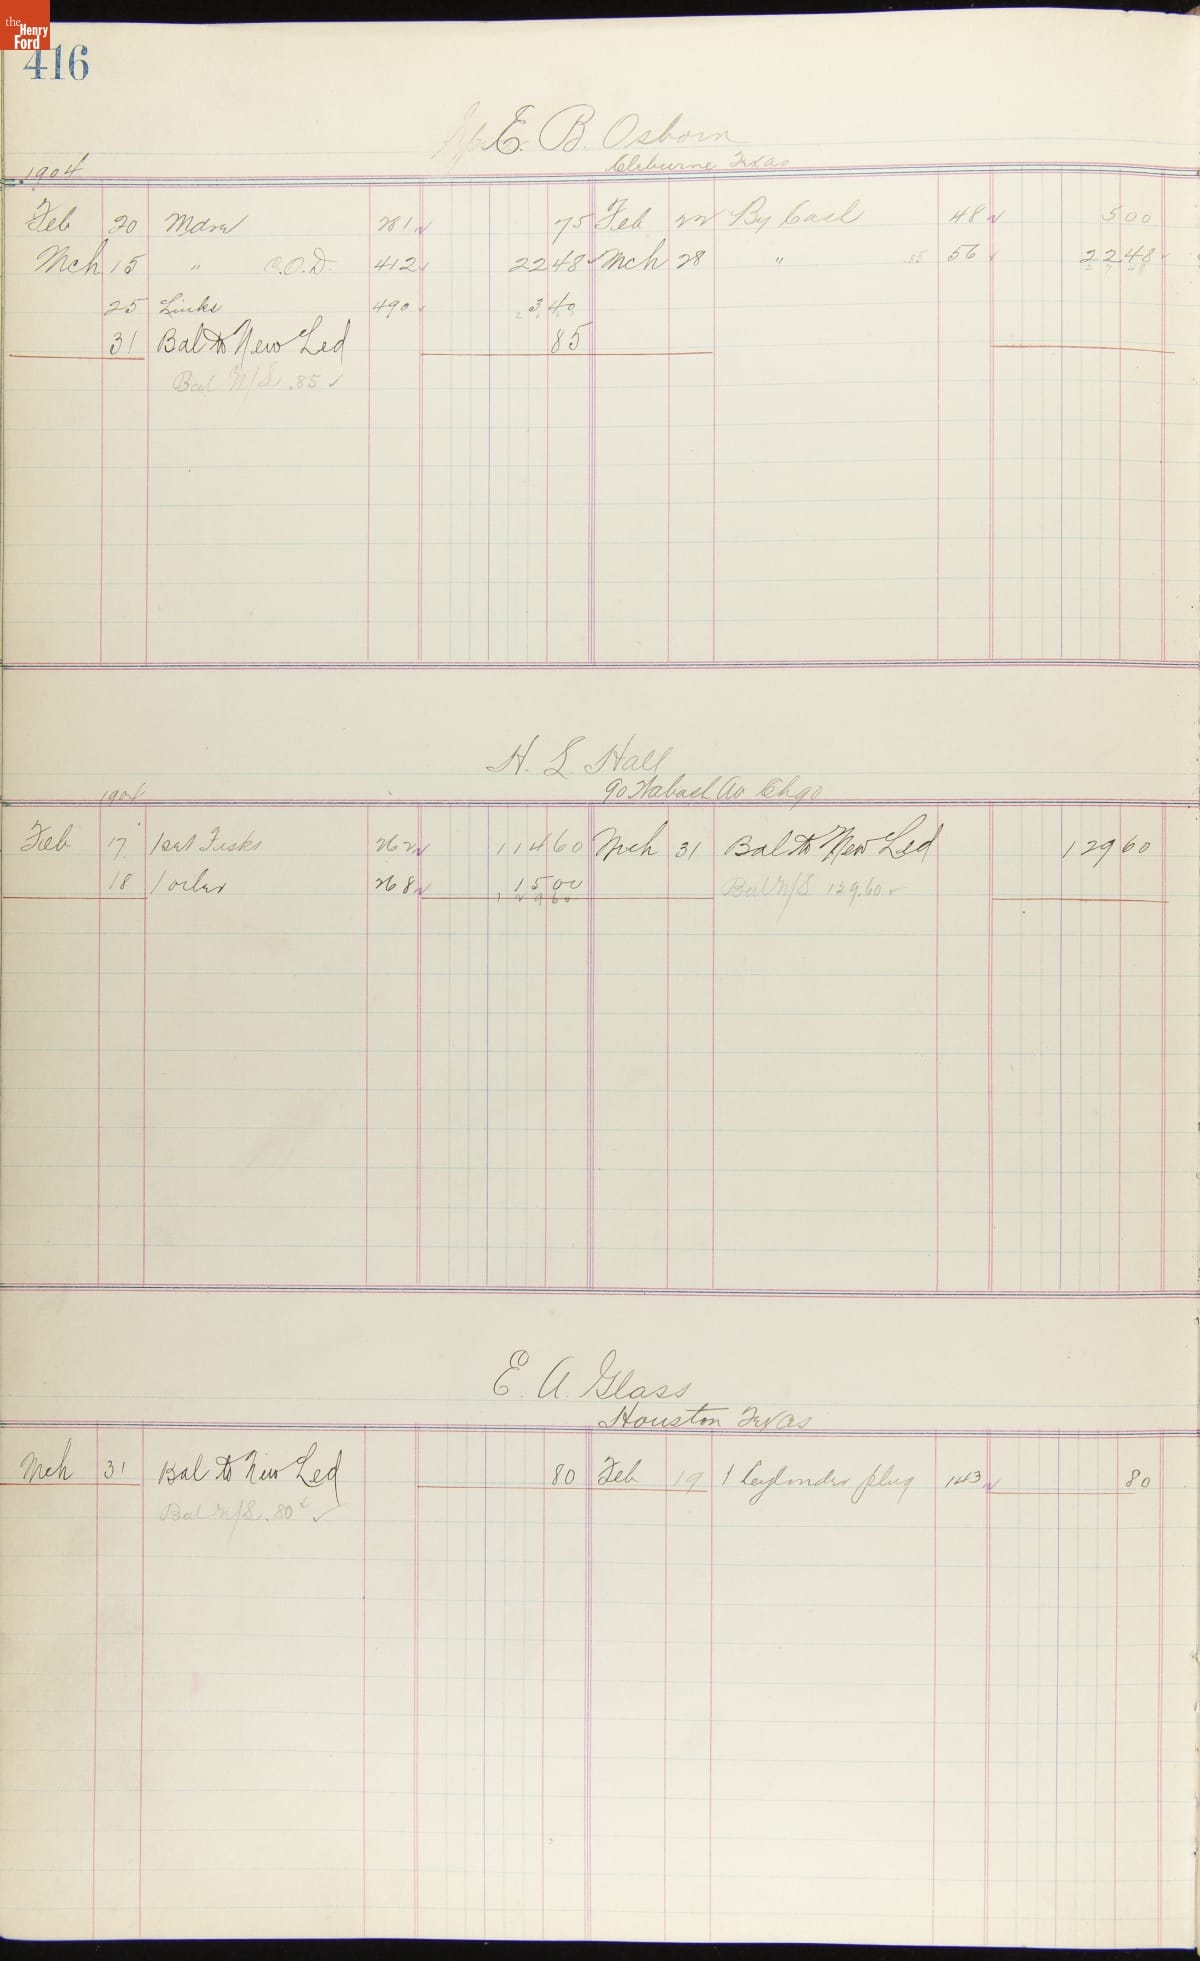 the
Henry
Ford
416
E. B. Osborn
Cleburne Texas
1904
Feb 20 Mdse 281 75 Feb 22 By Cash 48 500
Mch 15 " C.O.D. 412 2248 Mch 28 " .85 56 2248
25 Links 490 340
31 Bal to New Led 85
Bal N/L .85
H. L. Hall
90 Wabash Av Chgo
1904
Feb 17 1 set Fisks 262 11460 Mch 31 Bal to New Led 12960
18 1 oiler 268 1500 Bal N/L 129.60
12960
E. A. Glass
Houston Texas
Mch 31 Bal to New Led 80 Feb 19 1 Cylinder plug 143 80
Bal N/L .80